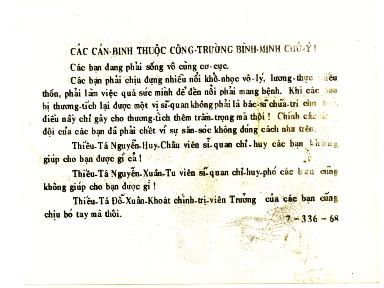 CÁC CÁN-BINH THUỘC CÔNG-TRƯỜNG BÌNH-MINH CHÚ-Ý !
Các bạn đang phải sống vô cùng cơ-cực.
Các bạn phải chịu đựng nhiều nổi khổ-nhọc vô-lý, lương-thực thiếu
thốn, phải làm việc quá sức mình để đến nổi phải mang bệnh. Khi các bạn
bị thương-tích lại được một vị sĩ-quan không phải là bác-sĩ chữa-trị cho bạn,
điều nầy chỉ gây cho thương-tích thêm trầm-trọng mà thôi ! Chính các
đội của các bạn đã phải chết vì sự săn-sóc không đúng cách như trên.
Thiếu-Tá Nguyễn-Huy-Châu viên sĩ-quan chỉ-huy các bạn không
giúp cho bạn được gì cả !
Thiếu-Tá Nguyễn-Xuân-Tu viên sĩ-quan chỉ-huy-phó các bạn cũng
không giúp cho bạn được gì !
Thiếu-Tá Đỗ-Xuân-Khoát chính-trị-viên Trưởng của các bạn cũng
chịu bó tay mà thôi.
7-336-68